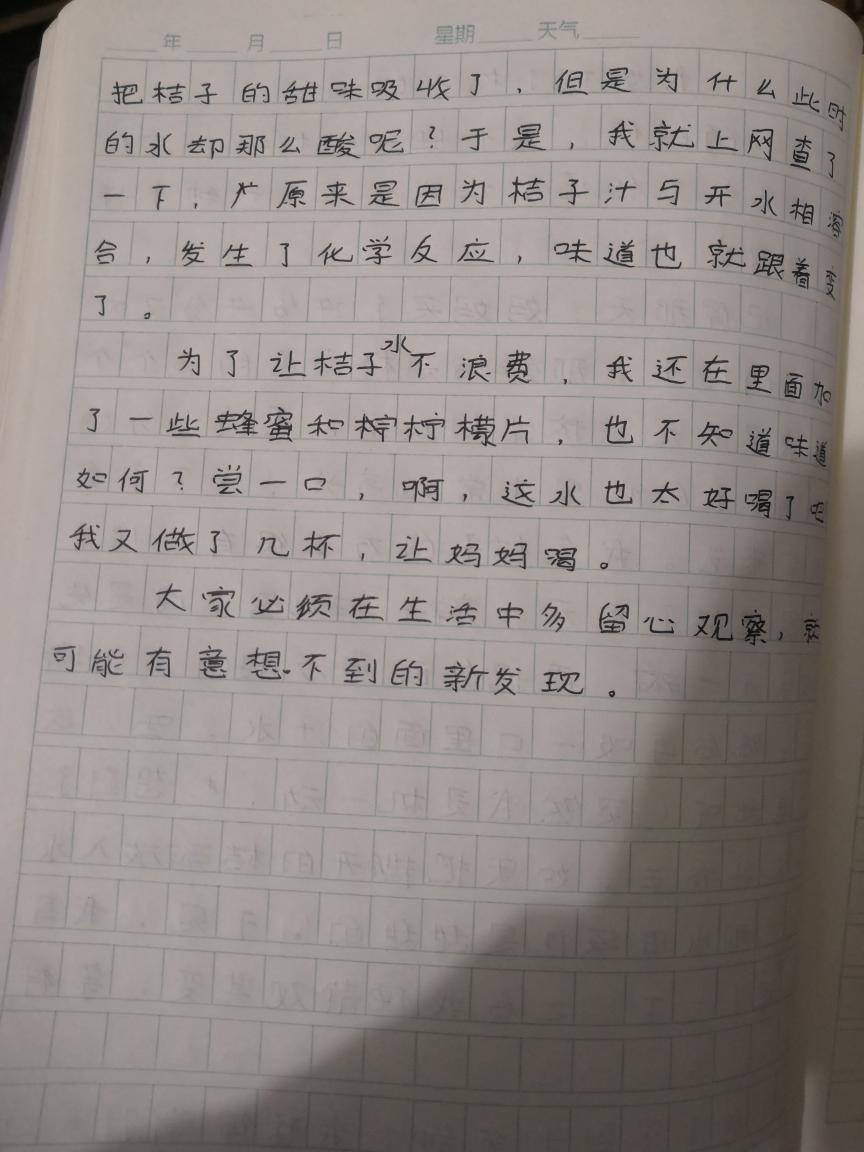 年 月 日 星期 天气
把桔子的甜味吸收了，但是为什么此时
的水却那么酸呢？于是，我就上网查了
一下，原来是因为桔子汁与开水相溶
合，发生了化学反应，味道也就跟着变
了。
为了让桔子水不浪费，我还在里面加
了一些蜂蜜和柠柠檬片，也不知道味道
如何？尝一口，啊，这水也太好喝了吧
我又做了几杯，让妈妈喝。
大家必须在生活中多留心观察，就
可能有意想不到的新发现。